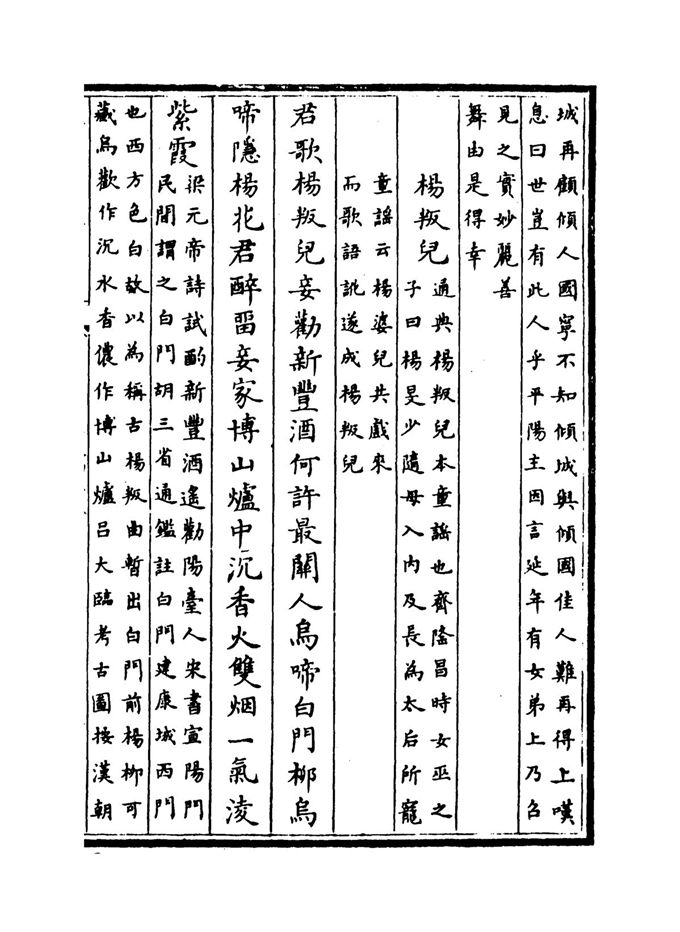 城再顧傾人國寧不知傾城與傾國佳人難再得上嘆
息曰世豈有此人乎平陽主因言延年有女弟上乃召
見之實妙麗善
舞由是得幸
楊叛兒
通典楊叛兒本童謡也齊隆昌時女巫之
子曰楊旻少隨母入内及長為太后所寵
童謡云楊婆兒共戲來
而歌語訛遂成楊叛兒
君歌楊叛兒妾勸新豐酒何許最關人烏啼白門柳烏
啼隱楊花君醉留妾家博山爐中沉香火雙烟一氣淩
紫霞
梁元帝詩試酌新豐酒遙勸陽臺人宋書宣陽門
民間謂之白門胡三省通鑑註白門建康城西門
也西方色白故以為稱古楊叛曲暫出白門前楊柳可
藏烏歡作沉水香儂作博山爐吕大臨考古圖按漢朝